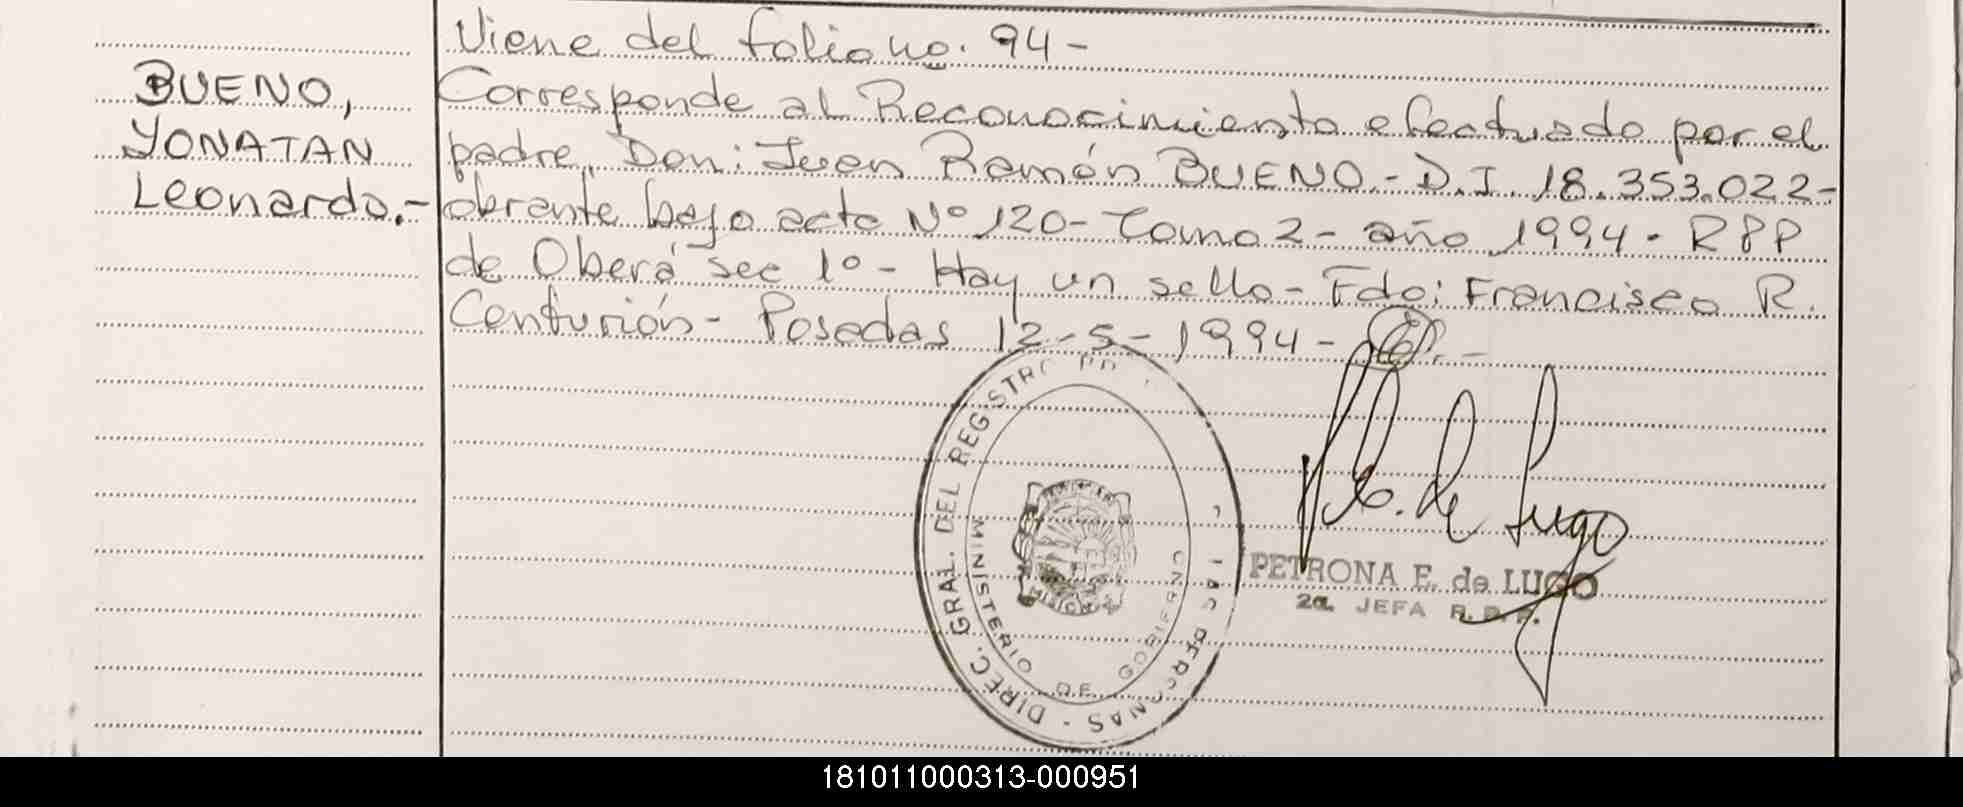 Viene del folio no. 94-
BUENO,
YONATAN
Leonardo.-
Corresponde al Reconocimiento efectuado por el
padre, Don: Juan Ramón BUENO.- D.I. 18.353.022-
obrante bajo acta Nº 120- Tomo 2- año 1994. RPP
de Oberá sec 1º- Hay un sello- Fdo: Francisco R.
Centurión- Posadas 12-5-1994-
DIREC. GRAL. DEL REGISTRO
MINISTERIO DE GOBIERNO
PETRONA E. de LUGO
2a. JEFA R.P.P.
181011000313-000951